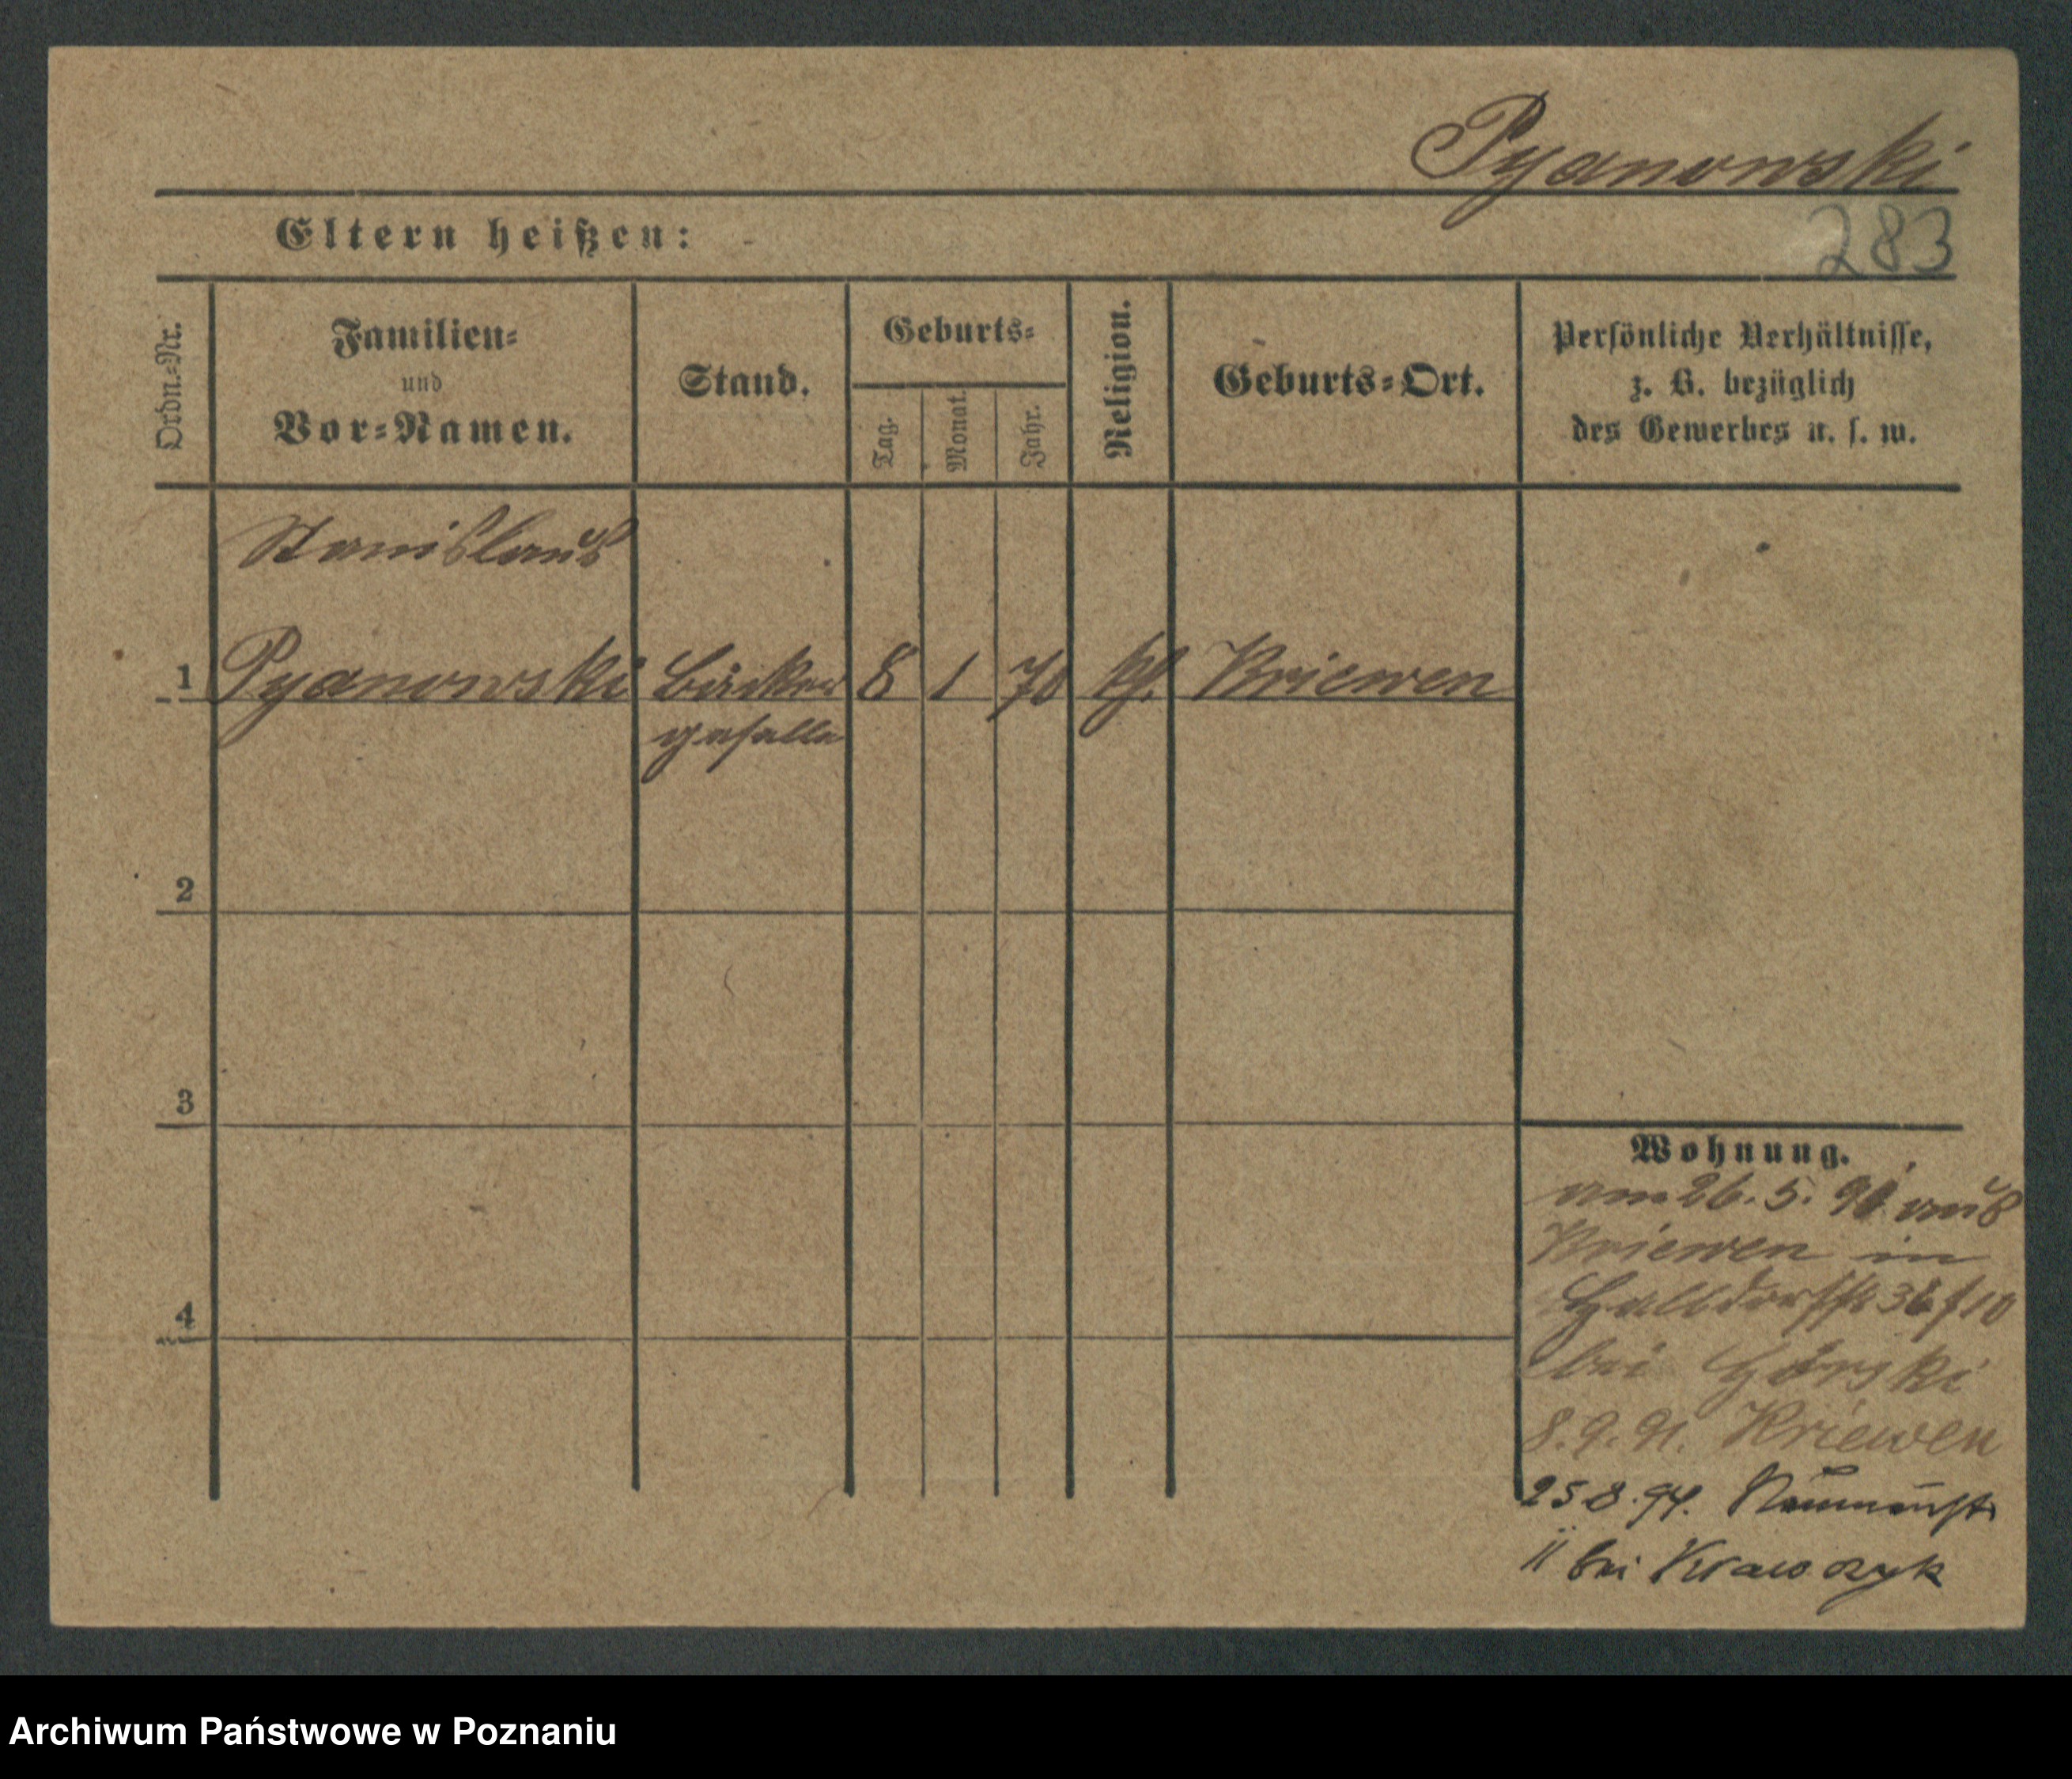 Pyanowski
283
Eltern heißen:
Ordn.-Nr.
Familien-
und
Vor-Namen.
Stand.
Geburts-
Tag.
Monat.
Jahr.
Religion.
Geburts-Ort.
Persönliche Verhältnisse,
z. B. bezüglich
des Gewerbes u. s. w.
Stanislaus
1 Pyanowski Bäcker 8 1 70 kf. Kriewen
geselle
2
3
4
Wohnung.
am 26. 5. aus
Kriewen in
bei Gorski
8. 9. 91. Kriewen
25 8. 94.
11 bei Krawczyk
Archiwum Państwowe w Poznaniu